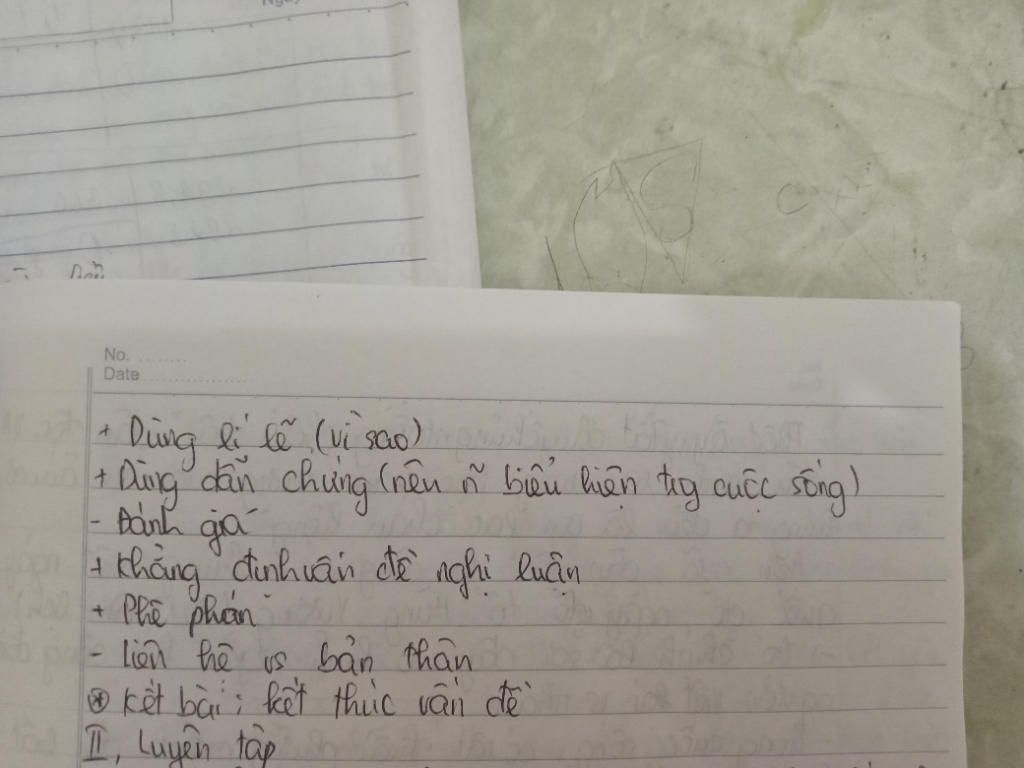 No. ........
Date ..................
+ Dùng lí lẽ (vì sao)
+ Dùng dẫn chứng (nên ñ biểu hiện trg cuộc sống)
- Đánh giá
+ Khẳng định vấn đề nghị luận
+ Phê phán
- Liên hệ vs bản thân
* Kết bài: kết thúc vấn đề
II, Luyện tập